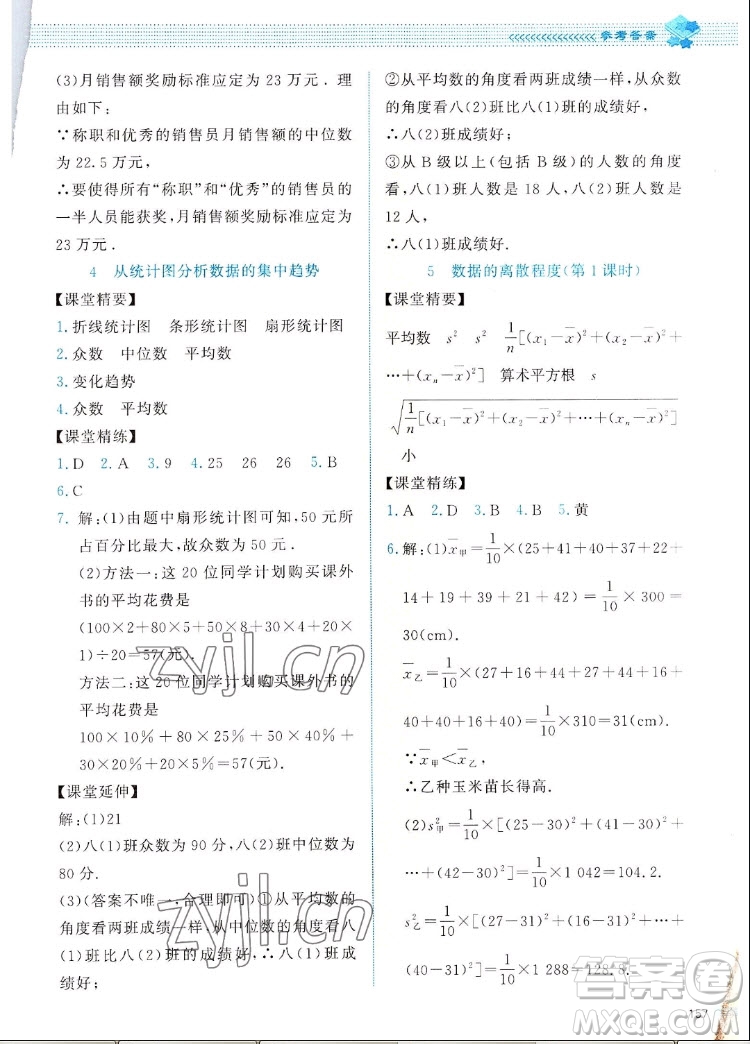 参考答案
(3)月销售额奖励标准应定为 23 万元. 理
由如下:
∵称职和优秀的销售员月销售额的中位数
为 22.5 万元,
∴要使得所有“称职”和“优秀”的销售员的
一半人员能获奖,月销售额奖励标准应定为
23 万元.
4 从统计图分析数据的集中趋势
【课堂精要】
1. 折线统计图 条形统计图 扇形统计图
2. 众数 中位数 平均数
3. 变化趋势
4. 众数 平均数
【课堂精练】
1. D 2. A 3. 9 4. 25 26 26 5. B
6. C
7. 解:(1)由题中扇形统计图可知,50 元所
占百分比最大,故众数为 50 元.
(2)方法一:这 20 位同学计划购买课外
书的平均花费是
(100×2+80×5+50×8+30×4+20×
1)÷20=57(元).
方法二:这 20 位同学计划购买课外书的
平均花费是
100×10%+80×25%+50×40%+30×
20%+20×5%=57(元).
【课堂延伸】
解:(1)21
(2)八(1)班众数为 90 分,八(2)班中位数为
80 分.
(3)(答案不唯一,合理即可)①从平均数的
角度看两班成绩一样,从中位数的角度看八
(1)班比八(2)班的成绩好,∴八(1)班成
绩好;
②从平均数的角度看两班成绩一样,从众数
的角度看八(2)班比八(1)班的成绩好,
∴八(2)班成绩好;
③从 B 级以上(包括 B 级)的人数的角度
看,八(1)班人数是 18 人,八(2)班人数是
12 人,
∴八(1)班成绩好.
5 数据的离散程度(第 1 课时)
【课堂精要】
平均数 s² s² 1/n[(x₁-x̄)²+(x₂-x̄)²+
…+(xₙ-x̄)²] 算术平方根 s
√(1/n[(x₁-x̄)²+(x₂-x̄)²+…+(xₙ-x̄)²])
小
【课堂精练】
1. A 2. D 3. B 4. B 5. 黄
6. 解:(1)x̄甲=1/10×(25+41+40+37+22+
14+19+39+21+42)=1/10×300=
30(cm).
x̄乙=1/10×(27+16+44+27+44+16+
40+40+16+40)=1/10×310=31(cm).
∵x̄甲<x̄乙,
∴乙种玉米苗长得高.
(2)s²甲=1/10×[(25-30)²+(41-30)²+…
+(42-30)²]=1/10×1 042=104.2.
s²乙=1/10×[(27-31)²+(16-31)²+…+
(40-31)²]=1/10×1 288=128.8.
157
zyjl.cn
zyjl.cn
答案圈